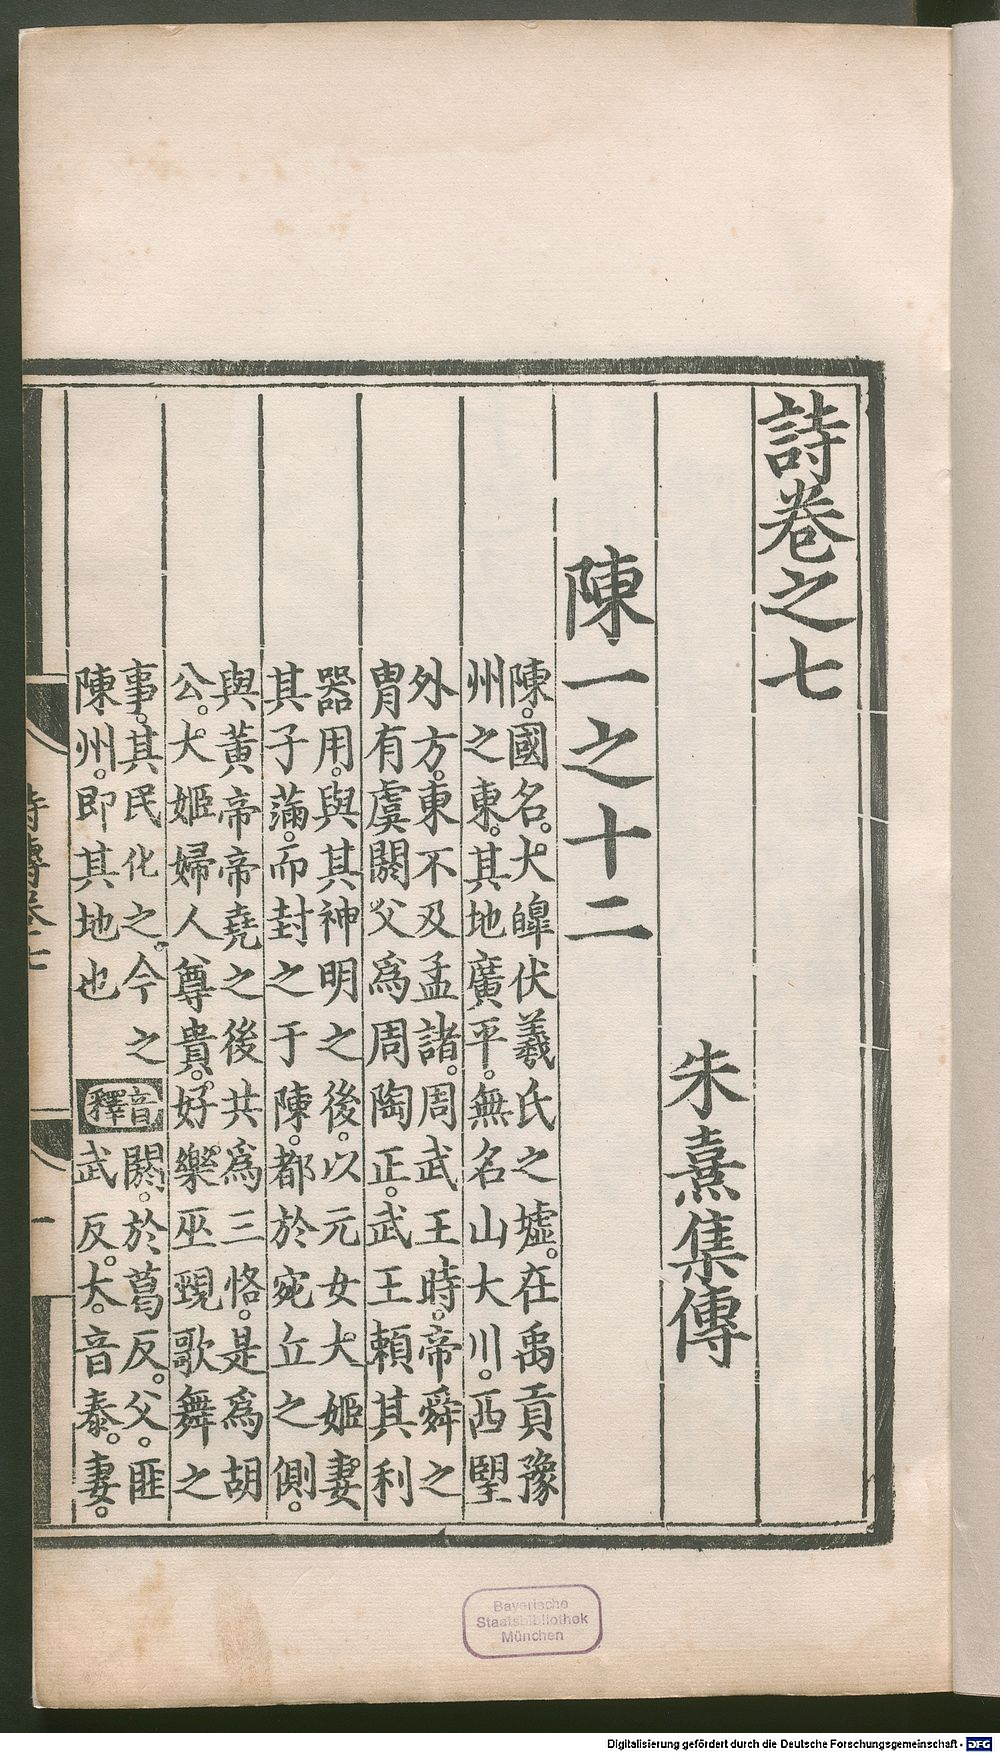 詩卷之七
朱熹集傳
陳一之十二
陳。國名。大皥伏羲氏之墟。在禹貢豫
州之東。其地廣平。無名山大川。西望
外方。東不及孟諸。周武王時。帝舜之
胄有虞閼父為周陶正。武王賴其利
器用。與其神明之後。以元女大姬妻
其子滿。而封之于陳。都於宛丘之側。
與黃帝帝堯之後共為三恪。是為胡
公。大姬婦人尊貴。好樂巫覡歌舞之
事。其民化之。今之
陳州。即其地也
音釋
閼。於葛反。父。匪
武反。大。音泰。妻。
詩傳卷七
一
Bayerische
Staatsbibliothek
München
Digitalisierung gefördert durch die Deutsche Forschungsgemeinschaft - DFG